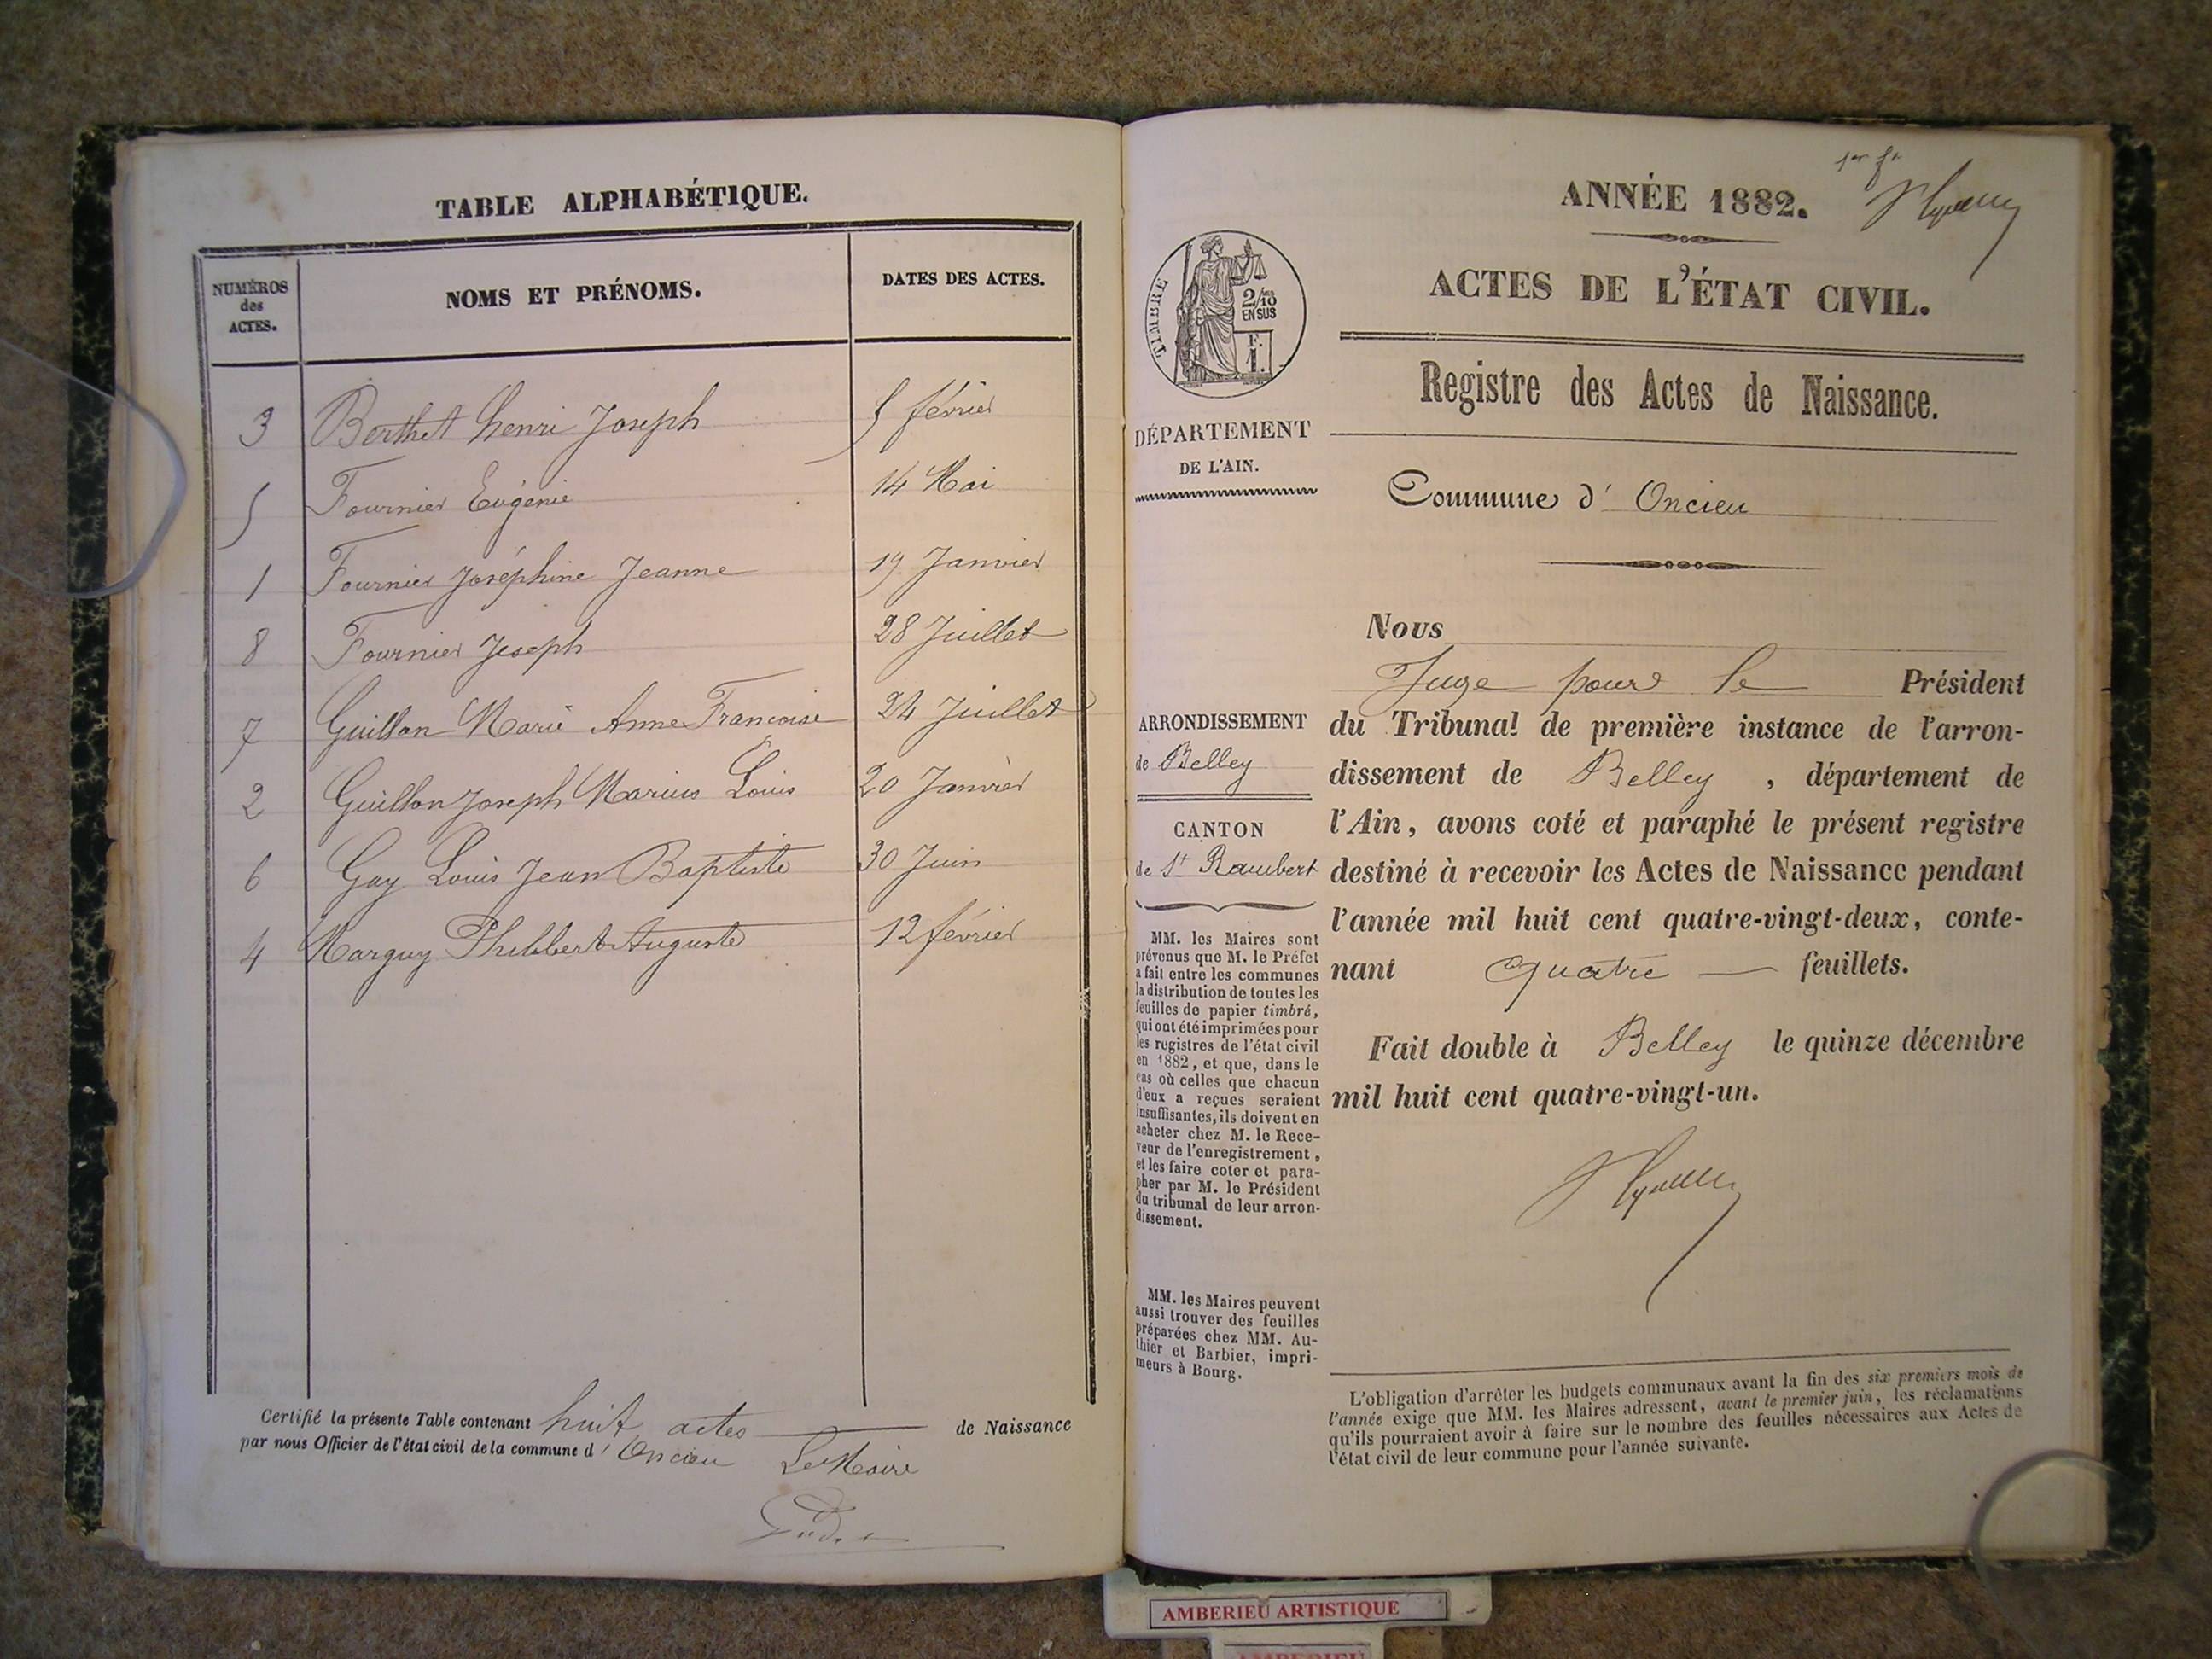 TABLE ALPHABÉTIQUE.
NUMÉROS
des
ACTES.
NOMS ET PRÉNOMS.
DATES DES ACTES.
3 Berthet henri Joseph 5 février
5 Fournier Eugénie 14 Mai
1 Fournier Joséphine Jeanne 19 Janvier
8 Fournier Joseph 28 Juillet
7 Guillon Marie Anne Francoise 24 Juillet
2 Guillon Joseph Marius Louis 20 Janvier
6 Gay Louis Jean Baptiste 30 Juin
4 Marguy Philibert Auguste 12 février
Certifié la présente Table contenant huit actes de Naissance
par nous Officier de l'état civil de la commune d' Oncieu Le Maire
1er ft
ANNÉE 1882.
ACTES DE L'ÉTAT CIVIL.
Registre des Actes de Naissance.
TIMBRE
2/10
EN SUS
F.
1.
DÉPARTEMENT
DE L'AIN.
Commune d' Oncieu
ARRONDISSEMENT
de Belley
CANTON
de St Rambert
MM. les Maires sont
prévenus que M. le Préfet
a fait entre les communes
la distribution de toutes les
feuilles de papier timbré,
qui ont été imprimées pour
les registres de l'état civil
en 1882, et que, dans le
cas où celles que chacun
d'eux a reçues seraient
insuffisantes, ils doivent en
acheter chez M. le Rece-
veur de l'enregistrement,
et les faire coter et para-
pher par M. le Président
du tribunal de leur arron-
dissement.
MM. les Maires peuvent
aussi trouver des feuilles
préparées chez MM. Au-
thier et Barbier, impri-
meurs à Bourg.
Nous
Juge pour le Président
du Tribunal de première instance de l'arron-
dissement de Belley, département de
l'Ain, avons coté et paraphé le présent registre
destiné à recevoir les Actes de Naissance pendant
l'année mil huit cent quatre-vingt-deux, conte-
nant quatre feuillets.
Fait double à Belley le quinze décembre
mil huit cent quatre-vingt-un.
L'obligation d'arrêter les budgets communaux avant la fin des six premiers mois de
l'année exige que MM. les Maires adressent, avant le premier juin, les réclamations
qu'ils pourraient avoir à faire sur le nombre des feuilles nécessaires aux Actes de
l'état civil de leur commune pour l'année suivante.
AMBERIEU ARTISTIQUE
AMBERIEU